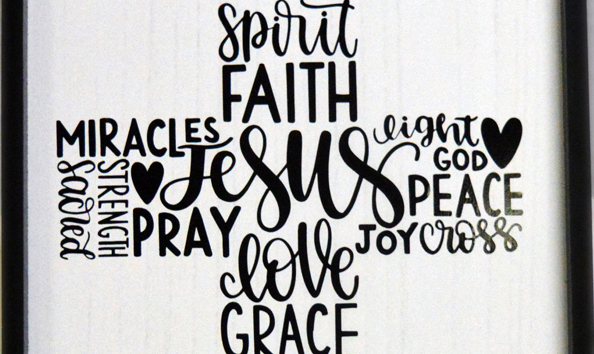 spirit
FAITH
MIRACLES
Jesus
light
GOD
PEACE
sacred
STRENGTH
PRAY
JOY cross
love
GRACE